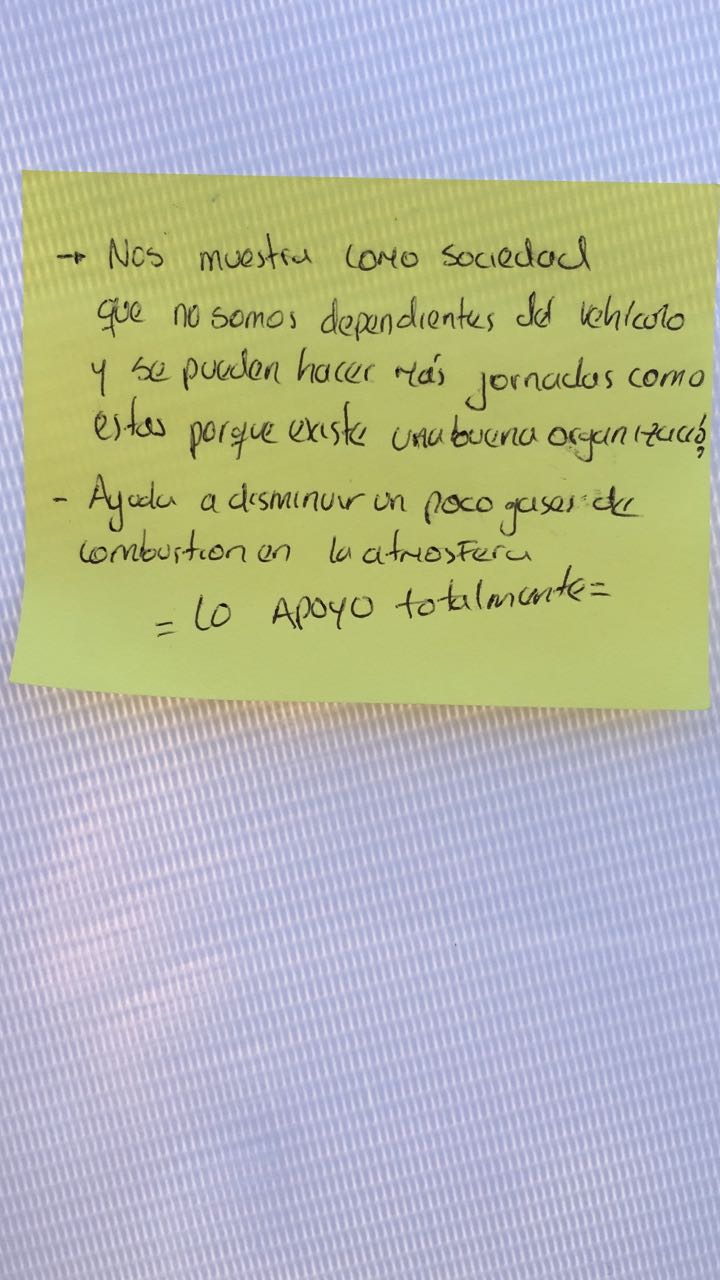 → Nos muestra como sociedad
que no somos dependientes del vehículo
y se pueden hacer más jornadas como
estas porque existe una buena organizació
- Ayuda a disminuir un poco gases de
combustion en la atmosfera
= LO APOYO totalmente =